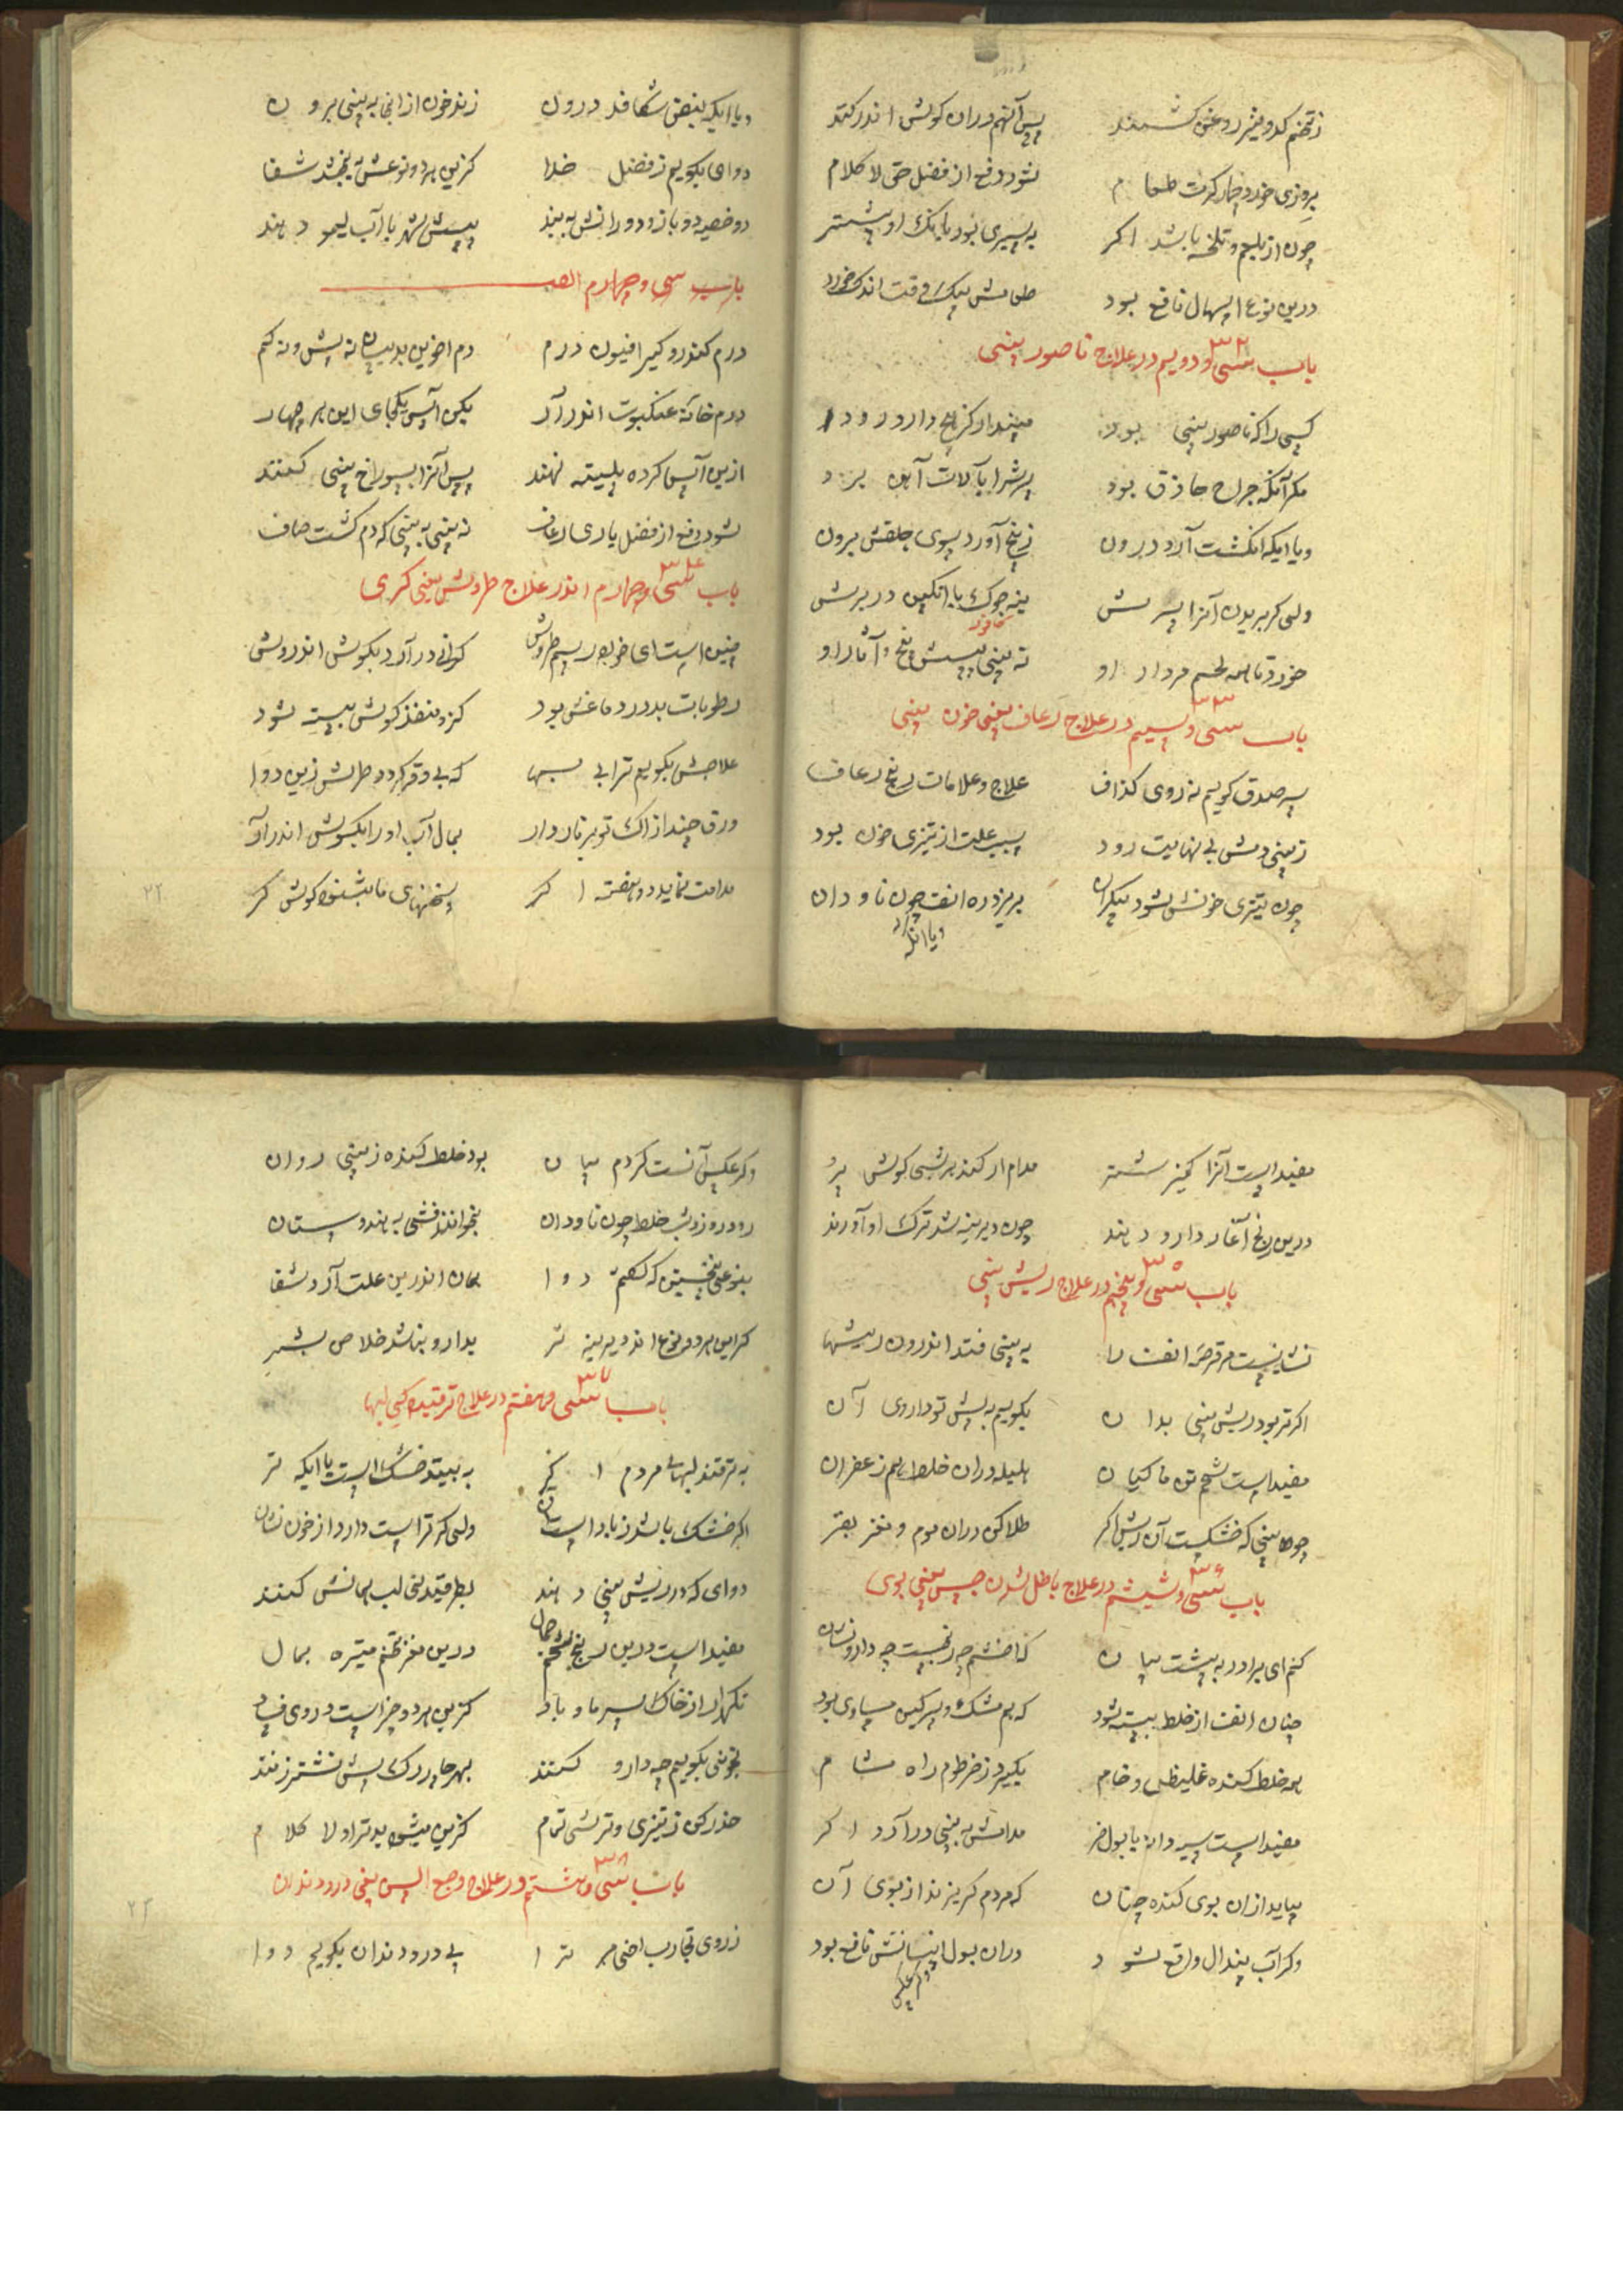 ز تخم کدو نیز روغن کشند پس آنهم دران کوش اندر کند
بروزی خورد چار کرت طعام شود دفع از فضل حق لا کلام
چون از بلغم و تلخه باشد اکر به سیری بود بانک او بیشتر
درین نوع اسهال نافع بود طعامش بیک وقت اندک خورد
باب سی و دویم در علاج ناصور بینی ۳۲
کسی را که ناصور بینی بود مپندار کز هیچ دارو رود
مکر آنکه جراح حاذق بود سرش را بآلات آهن برد
و یا ایکه انکشت آرد درون ز بیخ آورد سوی حلقش برون
ولی کر بریدن آنرا سرش بنه جوک با انکبین در برش
خورد تا همه لحم مردار او نه بینی سپس بیخ و آثار او
باب سی و سیم در علاج رعاف یعنی خون بینی ۳۳
بصدق کویم نه روی کذاف علاج و علامات رنج رعاف
ز بینی دمش بی نهایت رود سبب علت از تیزی خون بود
چون تیزی خونش شود بیکران بریزد ره انف چون ناودان
و یا انکه
و یا ایکه نبض شکافد درون زند خون از انجا به بینی برون
دوای بکویم ز فضل خدا کزین هر دو نوعش ببخشد شفا
دو خصیه دو بازو دو رانش به بند سپس شهر با آب لیمو دهند
باب سی و چهارم الصـ
درم کندرو کیر افیون درم دم اخوین بدینسان نه بیش و نه کم
درم خانه عنکبوت اندر آر بکن آس یکجای این هر چهار
ازین آس کرده پلیته نهند پس آنرا بسوراخ بینی کنند
شود دفع از فضل باری رعاف نه بینی به بینی که دم کشت صاف
باب سی و چهارم اندر علاج طروش یعنی کری ۳۴
چنین است ای خواجه رسم طروش کرانی در آرد بکوش اندروش
رطوبات بد در دماغش بود کزو منفذ کوش بسته شود
علاجش بکویم ترا بی بها که بی وقر کردد طرش زین دوا
ورق چند از آک تو بر نار دار بمال آب او را بکوش اندر آر
مدامت نماید دو هفته اکر سخنهای ما بشنود کوش کر
۲۲
مفید است آنرا کمیز شتر مدام ار کند هر شبی کوش پر
درین رنج آغاز دارو دهند چون دیرینه شد ترک او آورند
باب سی و پنجم در علاج ریش بینی ۳۵
نشانیست مر قرحه انف را به بینی فتد اندرون ریشها
اکر تر بود ریش بینی بدان بکویم به پیش تو داروی آن
مفید است شحم تن ماکیان هلیله دران خلط هم زعفران
چو ما بینی که خشکیست آن ریش اکر طلا کن دران موم و مغز بقر
باب سی و ششم در علاج باطل شدن حس بینی بوی ۳۶
کنم ای برادر به پیشت بیان که اخشم چه رنجیست چه دارو نشان
چنان انف از خلط بسته شود که هم مشک و سرکین مساوی بود
همه خلط کنده غلیظ و خام بکیرد ز خرطوم راه مشام
مفید است سیر دانه با بول خر مدامش به بینی در آرد اکر
بیاید ازان بوی کنده چنان که مردم کریزند از بوی آن
وکر آب پندال واقع شود دران بول انسانش نافع بود
وکر عکس
وکر عکس آنست کردم بیان بود خلط کنده ز بینی روان
رود روز و شب خلط چون ناودان بخوانند فشی به هندوستان
بنوعی نخستین که کفتم دوا همان اندرین علت آرد شفا
کر این هر دو نوع اند دیرینه تر بدارو نباشد خلاص بشر
باب سی و هفتم در علاج ترقیدکی لبها ۳۷
به ترقند لبهای مردم اکر به بیند خشک است یا ایکه تر
اکر خشک باشد ز باد است آن ولی کر تر است دارد از خون نشان
دوای که در ریش بینی دهند بطرقیدنی لب همانش کنند
مفید است درین رنج شحم جمال درین مغز تخم متیره بمال
نکهدار از خاک و سرما و باد کزین هر دو چیز است در وی فساد
بخونی بکویم چه دارو کنند بهر چار رک پیش نشتر زنند
حذر کن ز تیزی و ترشی تمام کزین میشود بدترا و لا کلام
باب سی و هشتم در علاج وجع السن یعنی درد دندان ۳۸
ز روی تجارب اخی مر ترا پی درد دندان بکویم دوا
۲۳